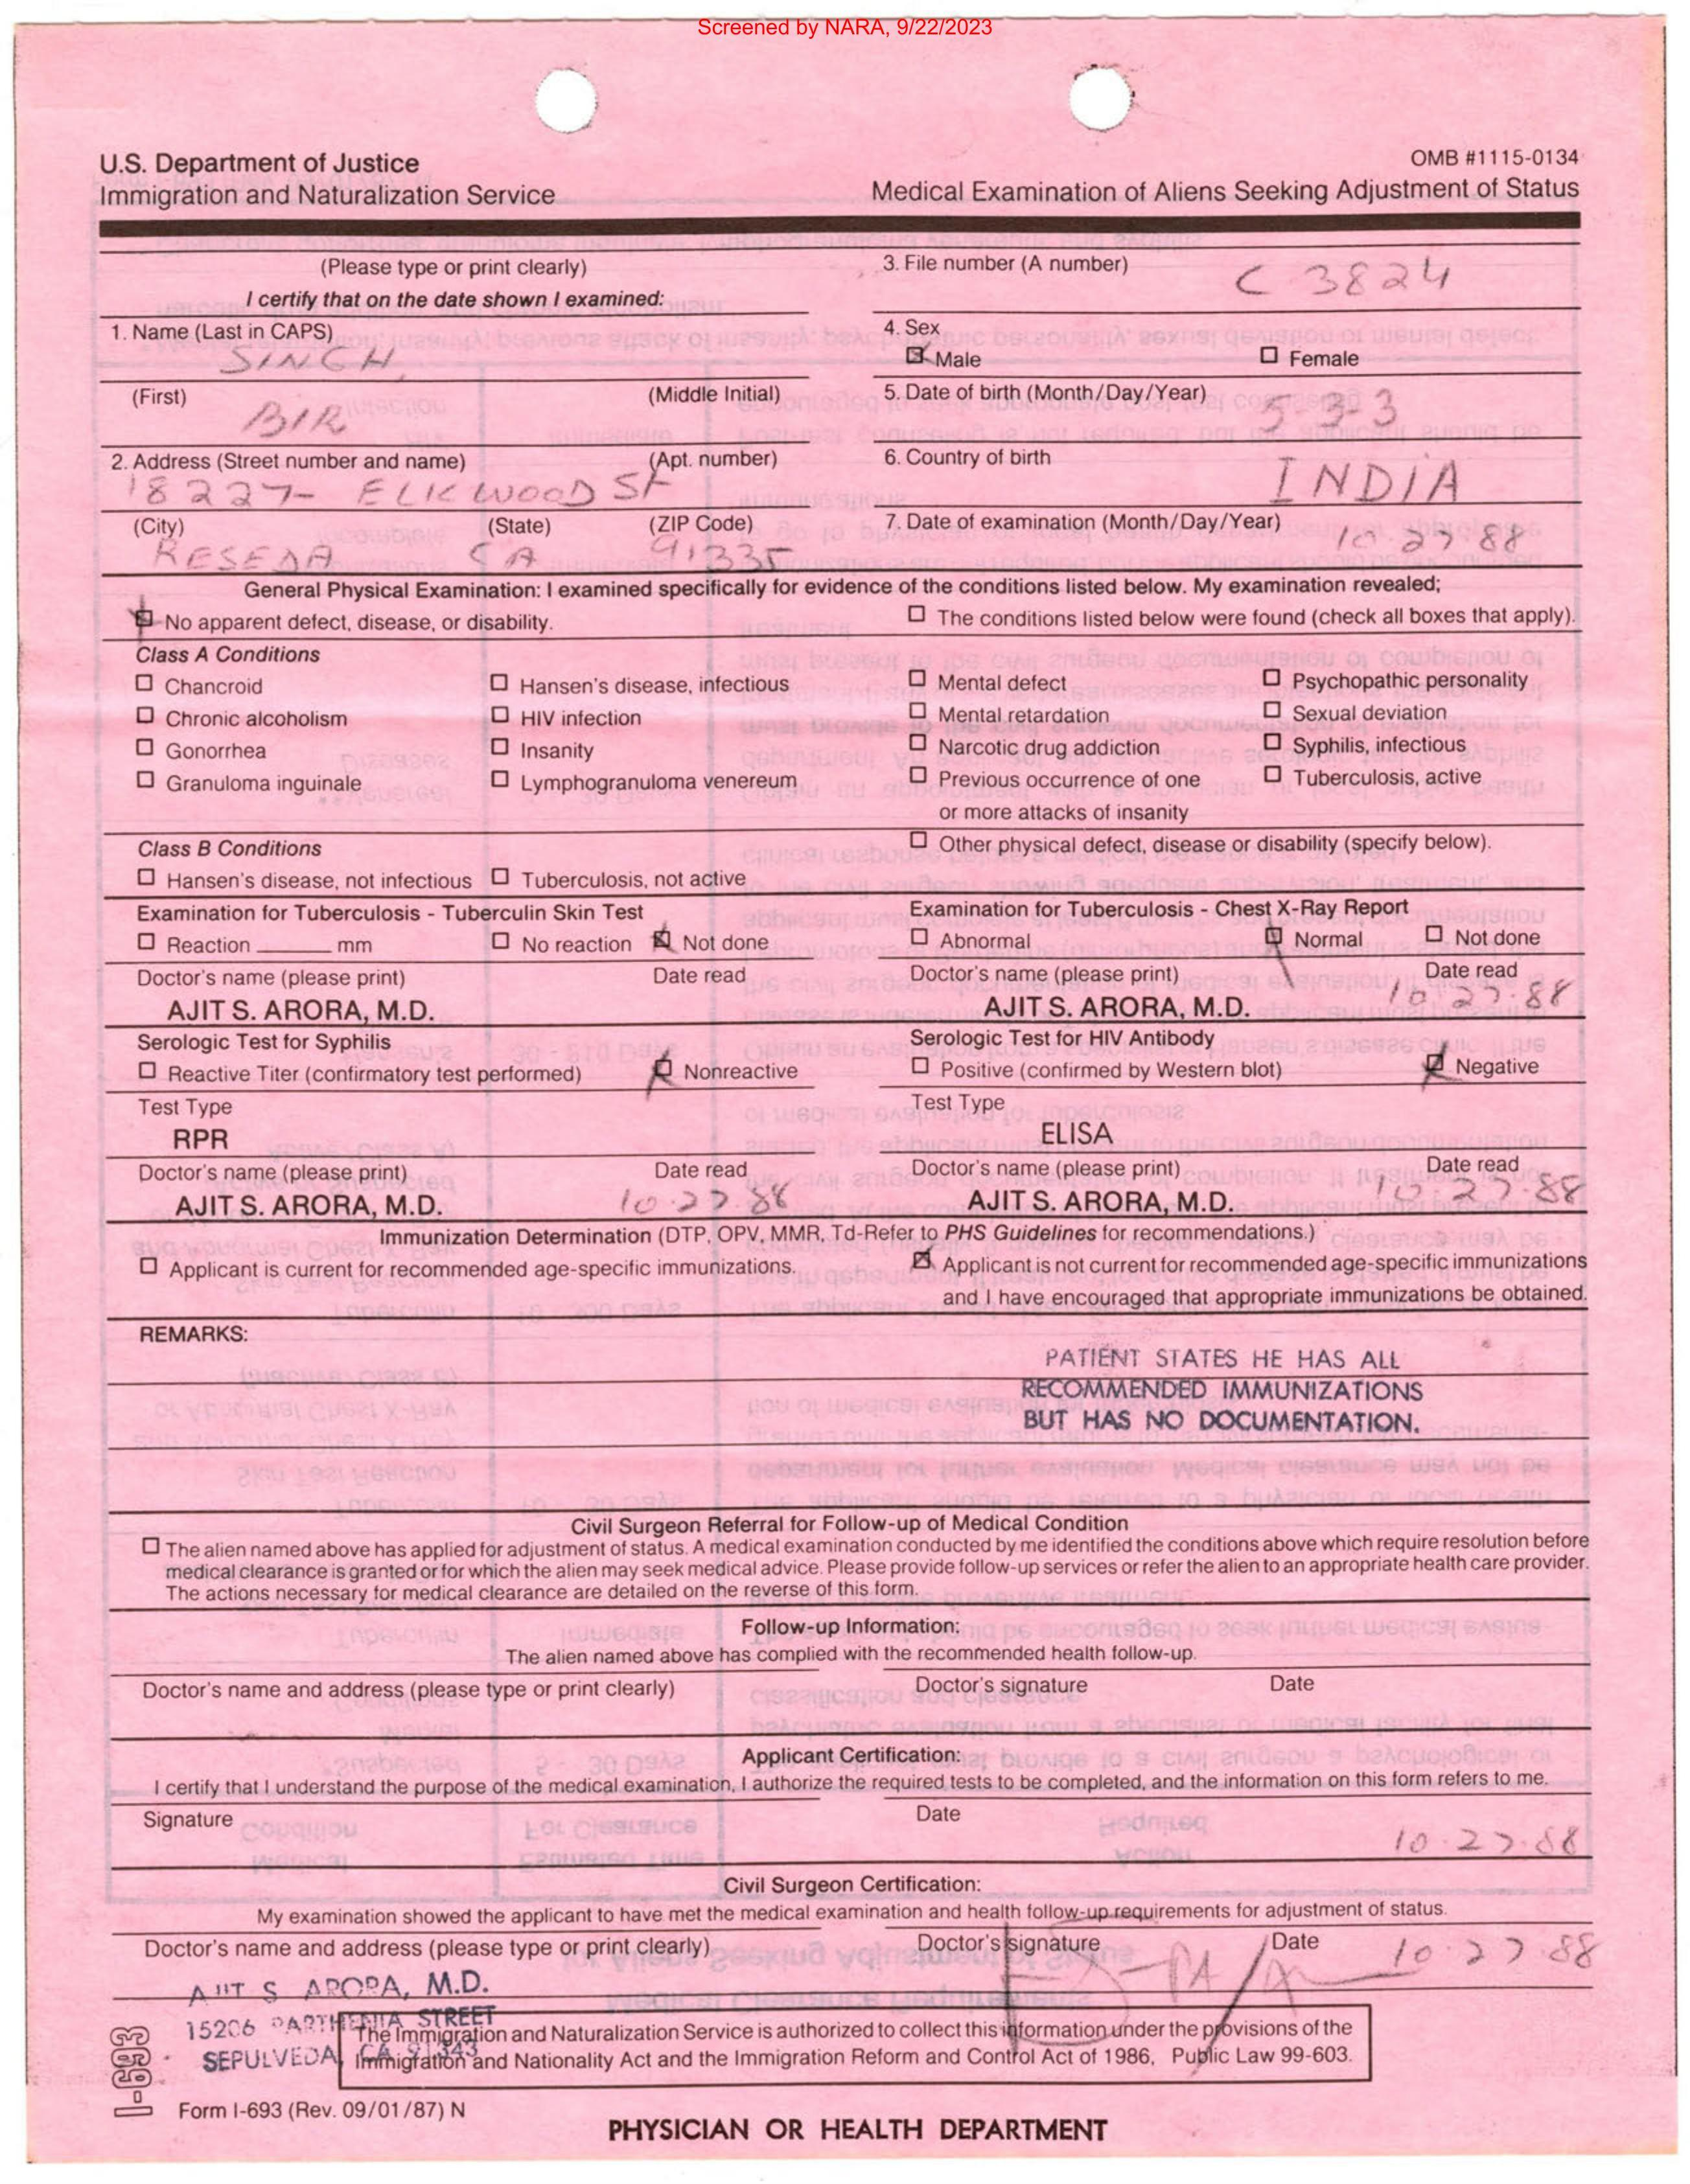 Screened by NARA, 9/22/2023
U.S. Department of Justice
Immigration and Naturalization Service
OMB #1115-0134
Medical Examination of Aliens Seeking Adjustment of Status
(Please type or print clearly)
I certify that on the date shown I examined:
3. File number (A number)
C 3824
1. Name (Last in CAPS)
SINGH
4. Sex
Male
Female
(First)
(Middle Initial)
BIR
5. Date of birth (Month/Day/Year)
5-3-3
2. Address (Street number and name)
(Apt. number)
18227- ELKWOOD St
6. Country of birth
INDIA
(City)
(State)
(ZIP Code)
RESEDA CA 91335
7. Date of examination (Month/Day/Year)
10 27 88
General Physical Examination: I examined specifically for evidence of the conditions listed below. My examination revealed;
No apparent defect, disease, or disability.
The conditions listed below were found (check all boxes that apply).
Class A Conditions
Chancroid
Hansen's disease, infectious
Mental defect
Psychopathic personality
Chronic alcoholism
HIV infection
Mental retardation
Sexual deviation
Gonorrhea
Insanity
Narcotic drug addiction
Syphilis, infectious
Granuloma inguinale
Lymphogranuloma venereum
Previous occurrence of one
or more attacks of insanity
Tuberculosis, active
Class B Conditions
Other physical defect, disease or disability (specify below).
Hansen's disease, not infectious
Tuberculosis, not active
Examination for Tuberculosis - Tuberculin Skin Test
Reaction ______ mm
No reaction
Not done
Doctor's name (please print)
Date read
AJIT S. ARORA, M.D.
Examination for Tuberculosis - Chest X-Ray Report
Abnormal
Normal
Not done
Doctor's name (please print)
Date read
AJIT S. ARORA, M.D.
10 27.88
Serologic Test for Syphilis
Reactive Titer (confirmatory test performed)
Nonreactive
Test Type
RPR
Doctor's name (please print)
Date read
AJIT S. ARORA, M.D.
10.27.88
Serologic Test for HIV Antibody
Positive (confirmed by Western blot)
Negative
Test Type
ELISA
Doctor's name (please print)
Date read
AJIT S. ARORA, M.D.
10.27.88
Immunization Determination (DTP, OPV, MMR, Td-Refer to PHS Guidelines for recommendations.)
Applicant is current for recommended age-specific immunizations.
Applicant is not current for recommended age-specific immunizations
and I have encouraged that appropriate immunizations be obtained.
REMARKS:
PATIENT STATES HE HAS ALL
RECOMMENDED IMMUNIZATIONS
BUT HAS NO DOCUMENTATION.
Civil Surgeon Referral for Follow-up of Medical Condition
The alien named above has applied for adjustment of status. A medical examination conducted by me identified the conditions above which require resolution before
medical clearance is granted or for which the alien may seek medical advice. Please provide follow-up services or refer the alien to an appropriate health care provider.
The actions necessary for medical clearance are detailed on the reverse of this form.
Follow-up Information:
The alien named above has complied with the recommended health follow-up.
Doctor's name and address (please type or print clearly)
Doctor's signature
Date
Applicant Certification:
I certify that I understand the purpose of the medical examination, I authorize the required tests to be completed, and the information on this form refers to me.
Signature
Date
10.27.88
Civil Surgeon Certification:
My examination showed the applicant to have met the medical examination and health follow-up requirements for adjustment of status.
Doctor's name and address (please type or print clearly)
Doctor's signature
Date
10.27 88
AJIT S ARORA, M.D.
15206 PARTHENIA STREET
SEPULVEDA, CA 91343
The Immigration and Naturalization Service is authorized to collect this information under the provisions of the
Immigration and Nationality Act and the Immigration Reform and Control Act of 1986, Public Law 99-603.
I-693
Form I-693 (Rev. 09/01/87) N
PHYSICIAN OR HEALTH DEPARTMENT